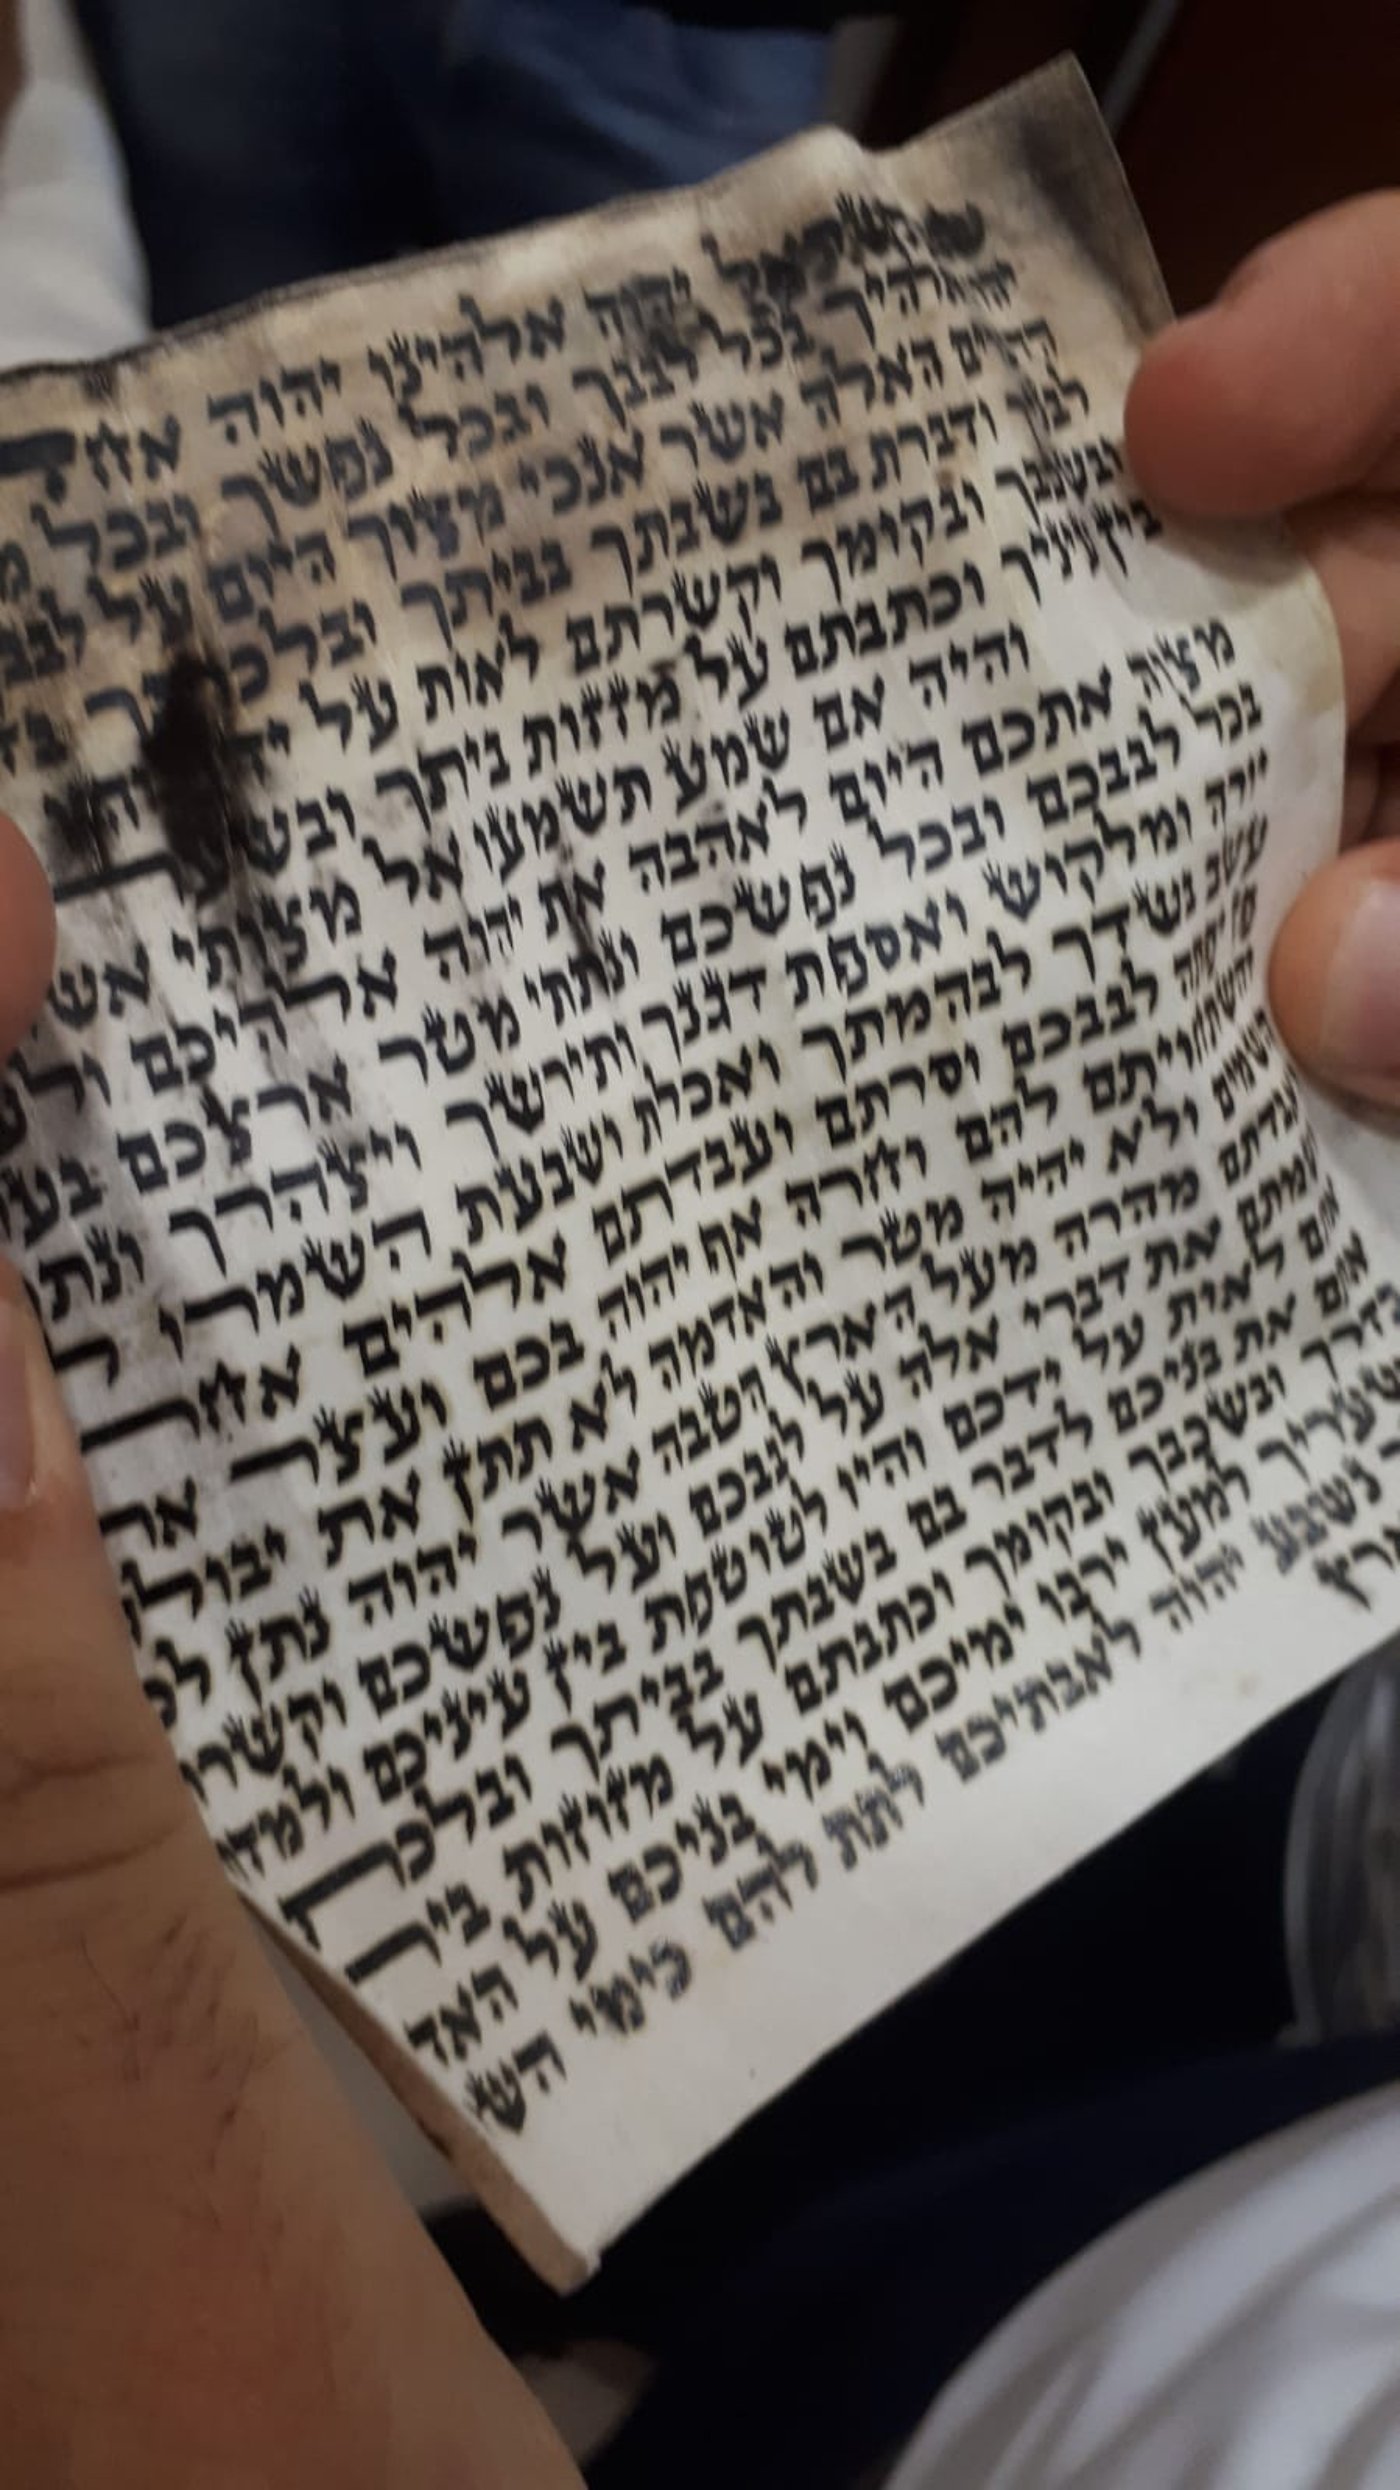 שמע ישראל יהוה אלהינו יהוה אחד
אלהיך בכל לבבך ובכל נפשך ובכל
הדברים האלה אשר אנכי מצוך היום על לבבך
לבניך ודברת בם בשבתך בביתך ובלכתך
ובשכבך ובקומך וקשרתם לאות על
בין עיניך וכתבתם על מזזות ביתך
והיה אם שמע תשמעו אל מצותי אשר
מצוה אתכם היום לאהבה את יהוה אלהיכם
בכל לבבכם ובכל נפשכם ונתתי מטר ארצכם
יורה ומלקוש ואספת דגנך ותירשך ויצהרך ונתתי
עשב בשדך לבהמתך ואכלת ושבעת השמרו
יפתה לבבכם וסרתם ועבדתם אלהים
והשתחויתם להם וחרה אף יהוה בכם ועצר את
השמים ולא יהיה מטר והאדמה לא תתן את
ואבדתם מהרה מעל הארץ הטבה אשר יהוה נתן
ושמתם את דברי אלה על לבבכם ועל נפשכם וקשרתם
אתם לאות על ידכם והיו לטוטפת בין עיניכם ולמדתם
אתם את בניכם לדבר בם בשבתך בביתך
בדרך ובשכבך ובקומך וכתבתם על מזוזות
למען ירבו ימיכם וימי בניכם על
נשבע יהוה לאבתיכם לתת להם כימי